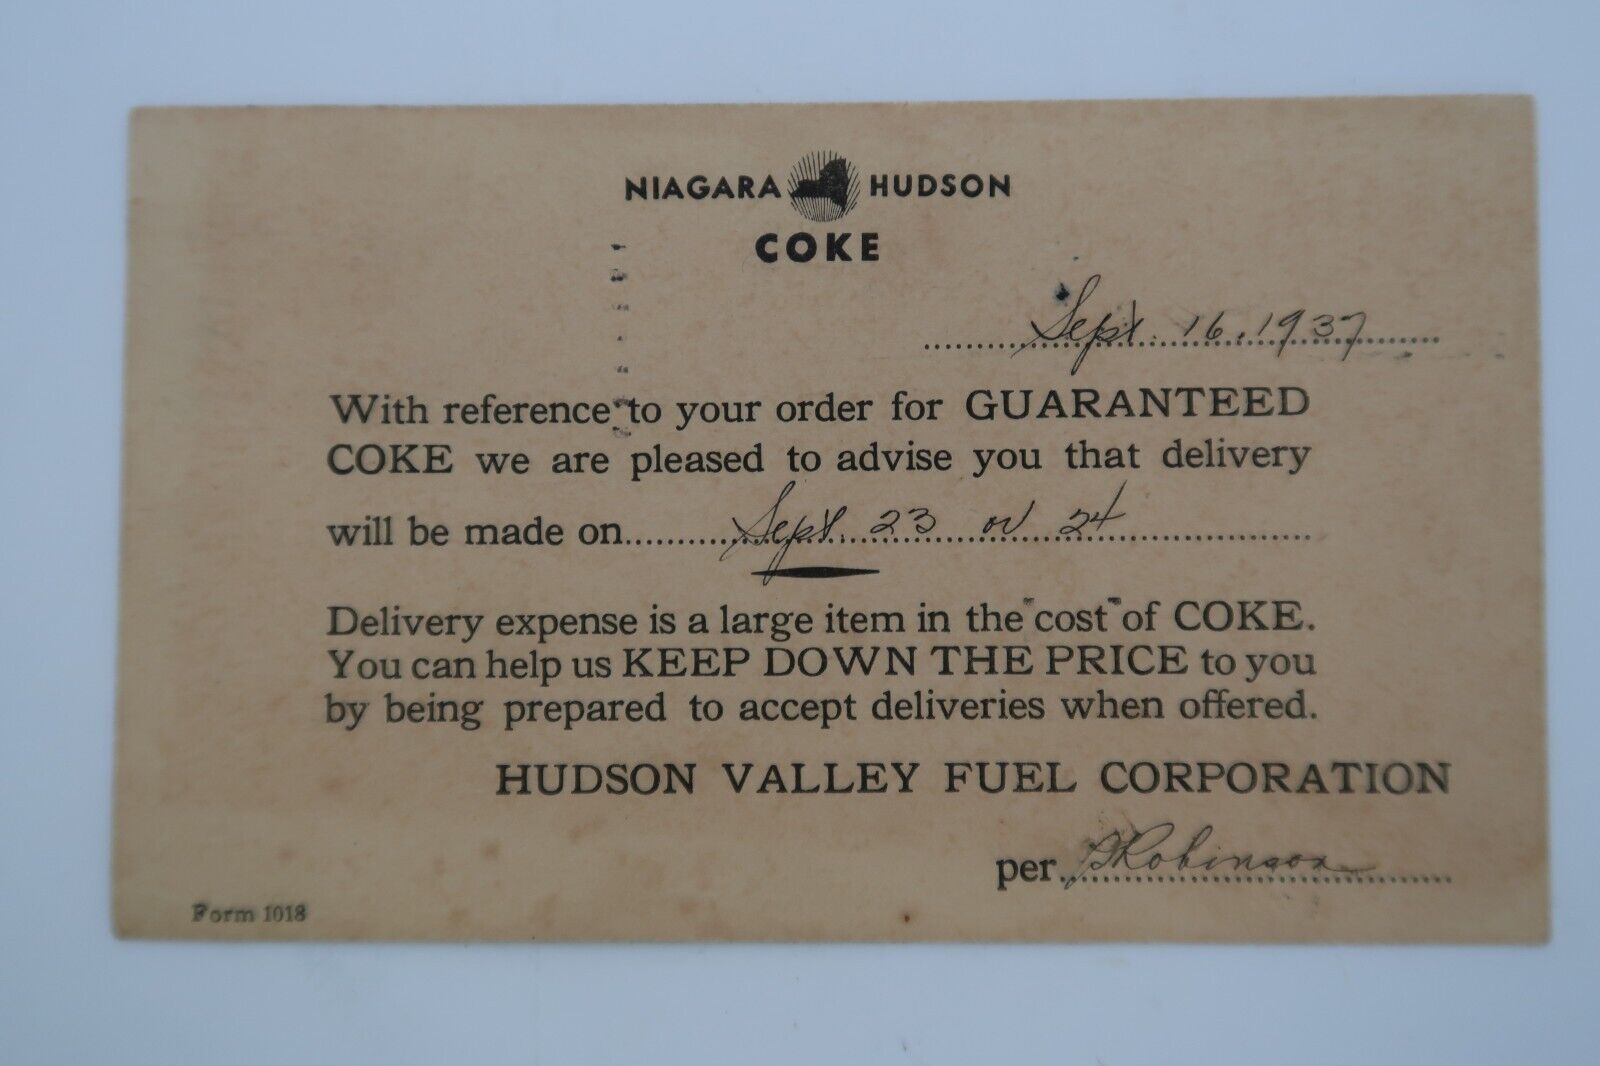 NIAGARA HUDSON
COKE
Sept. 16, 1937
With reference to your order for GUARANTEED
COKE we are pleased to advise you that delivery
will be made on Sept. 23 or 24
Delivery expense is a large item in the cost of COKE.
You can help us KEEP DOWN THE PRICE to you
by being prepared to accept deliveries when offered.
HUDSON VALLEY FUEL CORPORATION
per Robinson
Form 1018